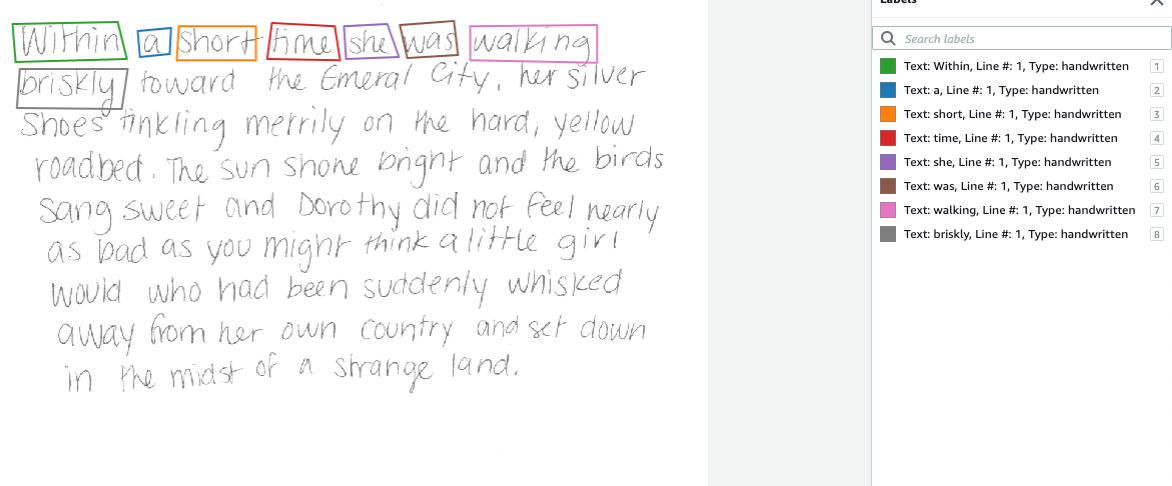 Within a short time she was walking
briskly toward the Emeral City, her silver
Shoes tinkling merrily on the hard, yellow
roadbed. The sun shone bright and the birds
sang sweet and Dorothy did not feel nearly
as bad as you might think a little girl
would who had been suddenly whisked
away from her own country and set down
in the midst of a strange land.
Labels
Search labels
Text: Within, Line #: 1, Type: handwritten 1
Text: a, Line #: 1, Type: handwritten 2
Text: short, Line #: 1, Type: handwritten 3
Text: time, Line #: 1, Type: handwritten 4
Text: she, Line #: 1, Type: handwritten 5
Text: was, Line #: 1, Type: handwritten 6
Text: walking, Line #: 1, Type: handwritten 7
Text: briskly, Line #: 1, Type: handwritten 8